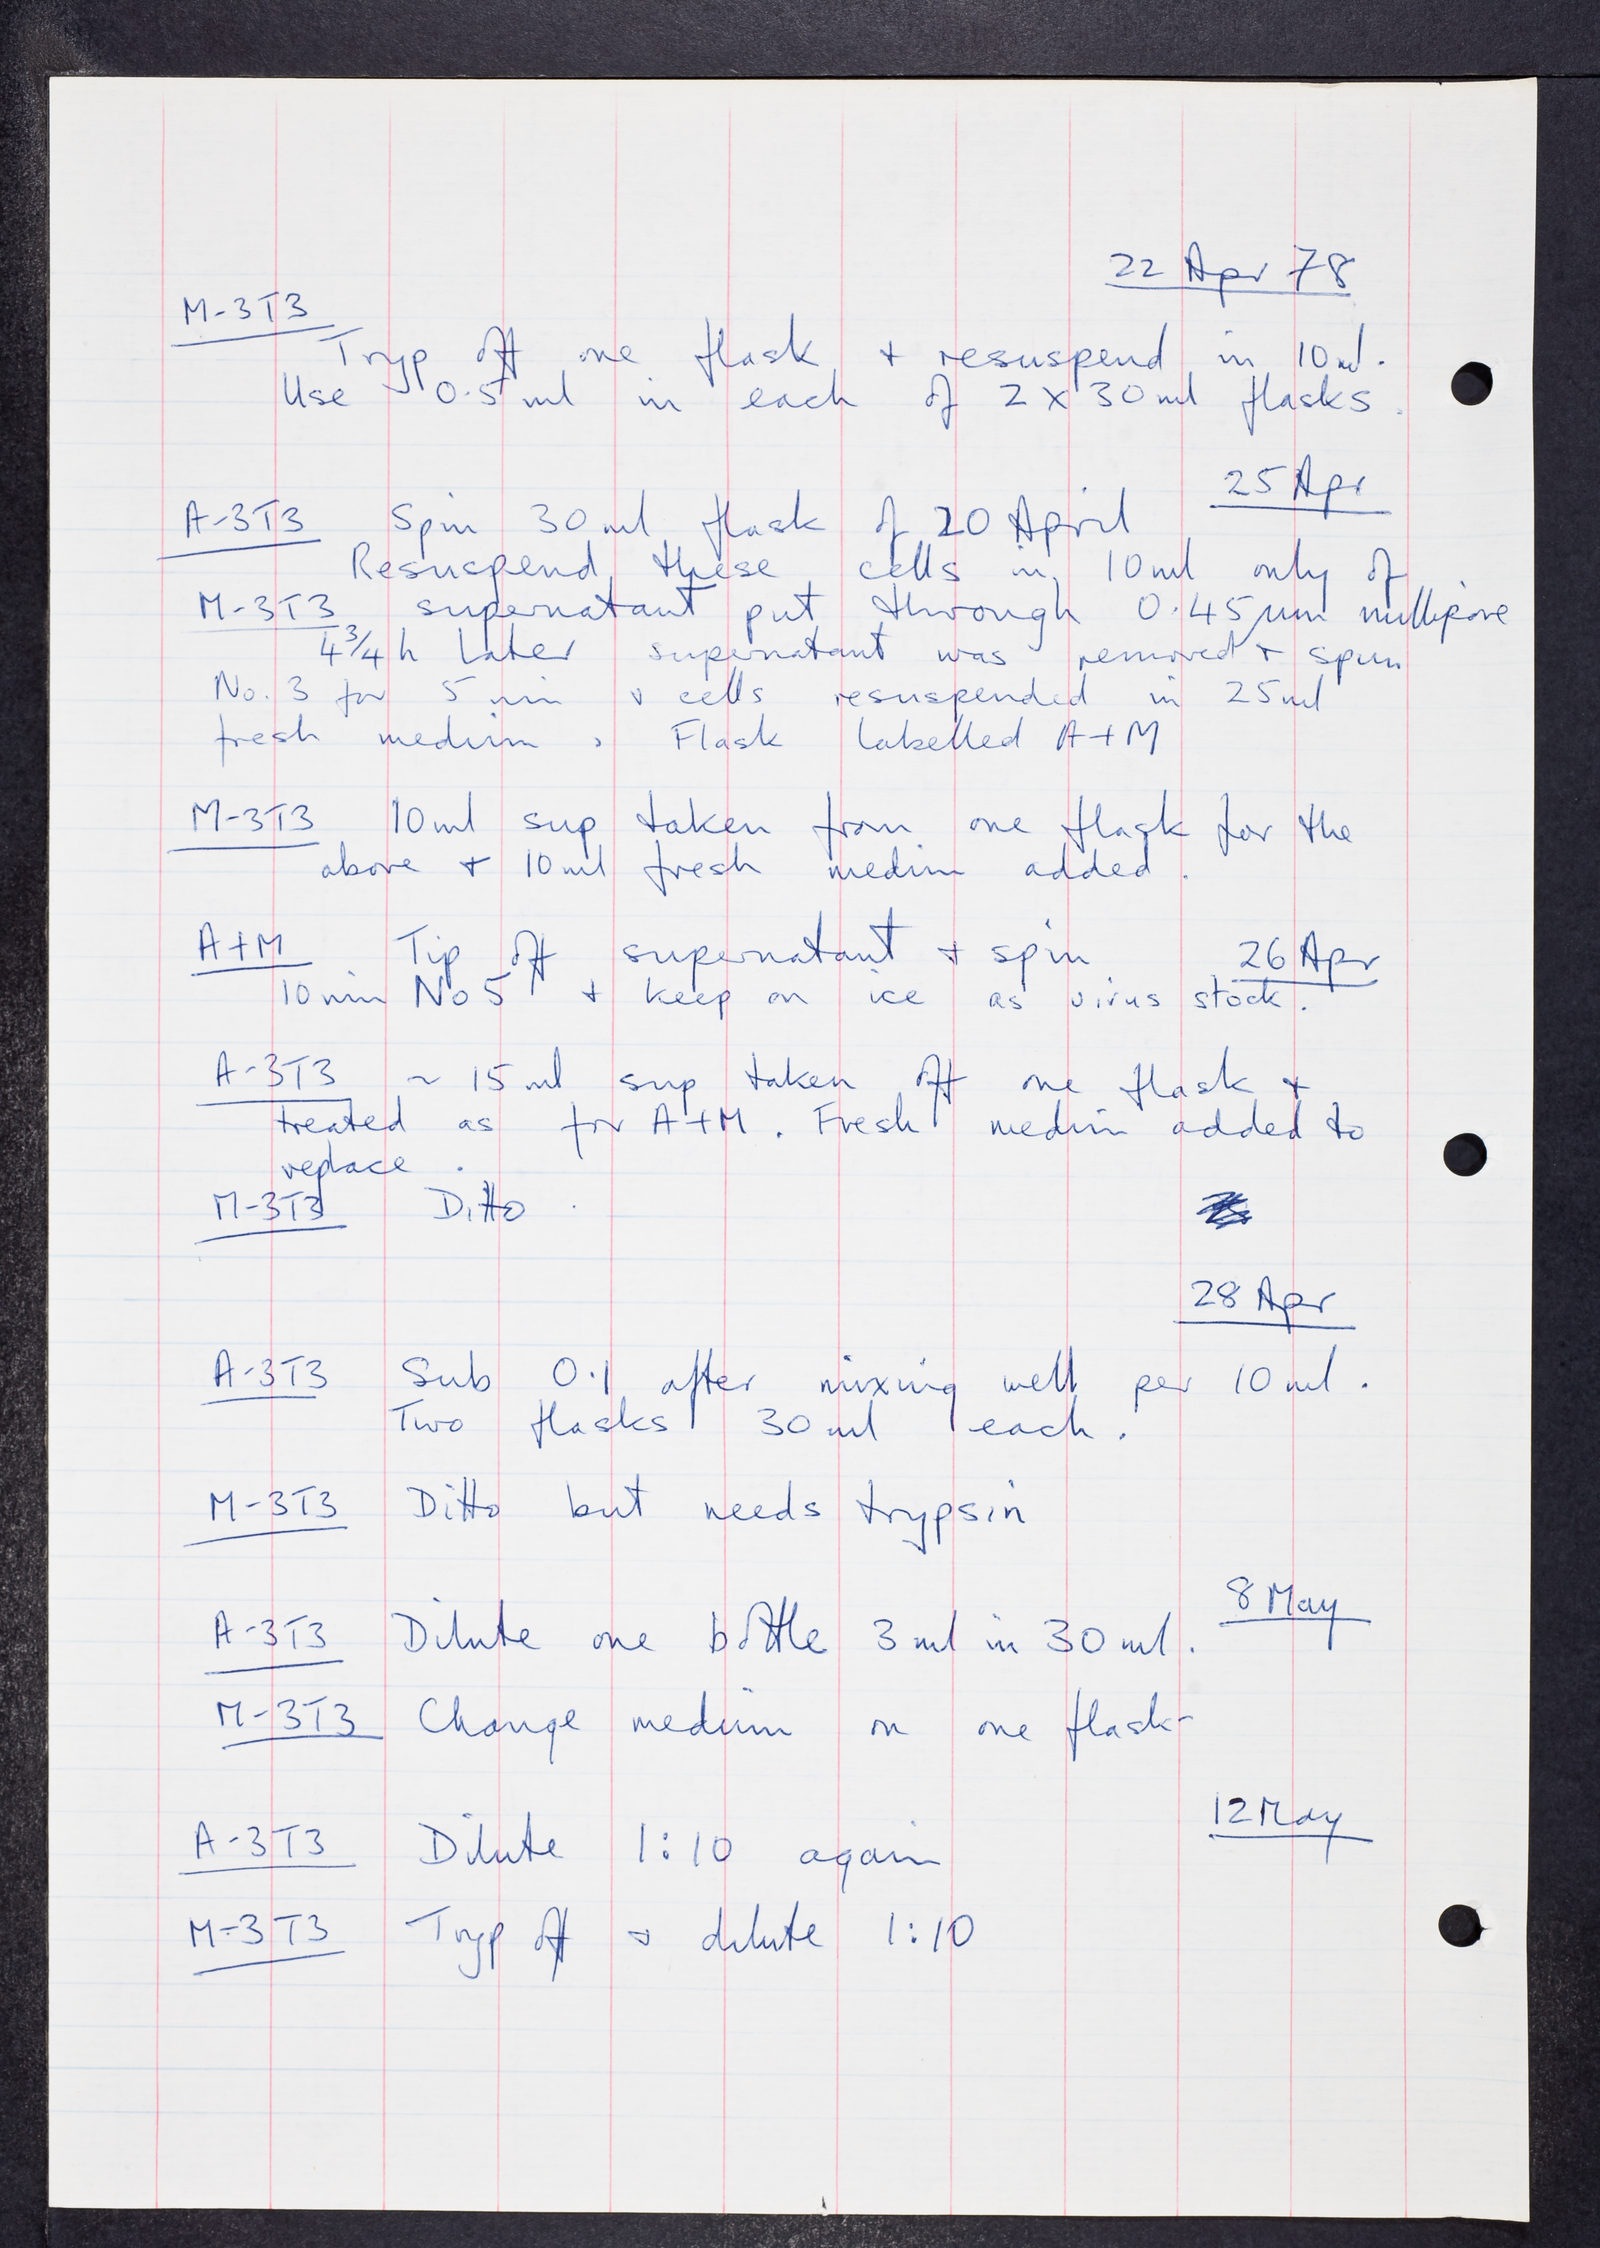 22 Apr 78
M-3T3
Tryp off one flask + resuspend in 10ml.
Use 0.5 ml in each of 2 x 30ml flasks.
25 Apr
A-3T3 Spin 30ml flask of 20 April
Resuspend these cells in 10ml only of
M-3T3 supernatant put through 0.45µm millipore
4¾ h later supernatant was removed + spun
No. 3 for 5 min + cells resuspended in 25ml
fresh medium. Flask labelled A+M
M-3T3 10ml sup taken from one flask for the
above + 10ml fresh medium added.
A+M Tip off supernatant + spin 26 Apr
10min No 5 + keep on ice as virus stock.
A-3T3 ~ 15 ml sup taken off one flask +
treated as for A+M. Fresh medium added to
replace.
M-3T3 Ditto.
28 Apr
A-3T3 Sub 0.1 after mixing well per 10ml.
Two flasks 30ml each.
M-3T3 Ditto but needs trypsin
8 May
A-3T3 Dilute one bottle 3ml in 30ml.
M-3T3 Change medium on one flask
12 May
A-3T3 Dilute 1:10 again
M-3T3 Tryp off + dilute 1:10